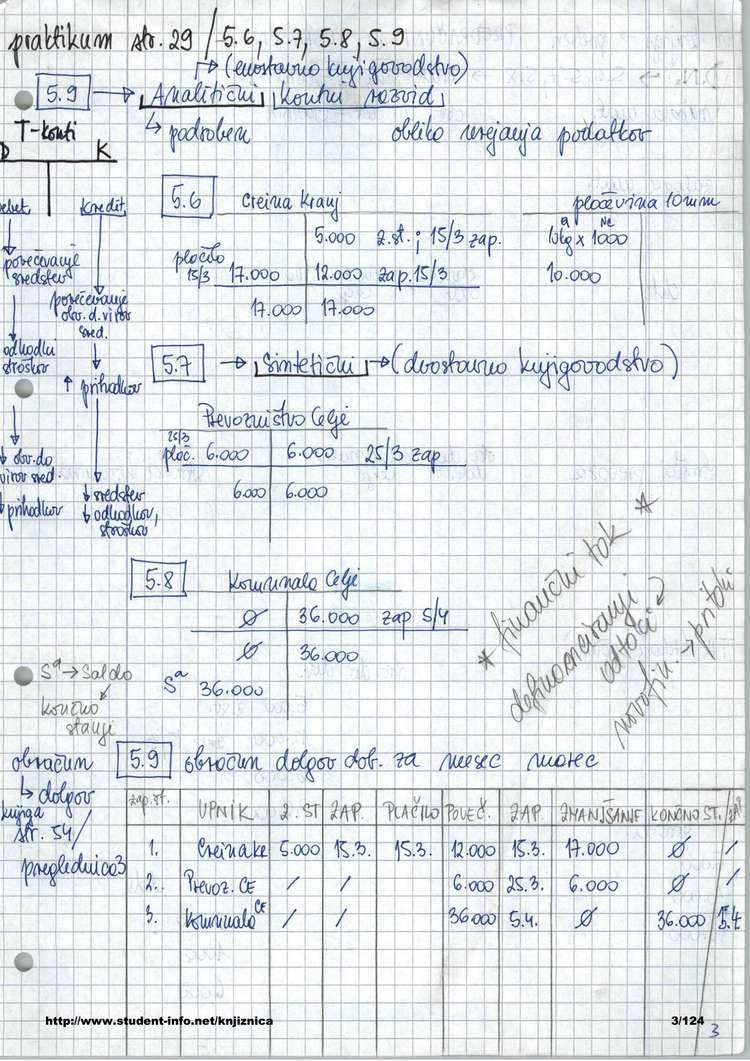 praktikum str. 29 / 5.6, 5.7, 5.8, 5.9
→ (enostavno knjigovodstvo)
5.9 → Analitični kontni razvid
↳ podroben oblika urejanja podatkov
T-konti
D K
debet kredit
povečevanje sredstev
povečevanje obv. d. virov sred.
odhodki stroškov
↑ prihodkov
↓ obv. do virov sred.
↓ prihodkov
↓ sredstev
↓ odhodkov, stroškov
5.6 Creina Kranj
5.000 z.st.; 15/3 zap.
plačilo 15/3 17.000 12.000 zap. 15/3
17.000 17.000
pločevina 10mm
10kg x 1000
10.000
5.7 → Sintetični → (dvostavno knjigovodstvo)
Prevozništvo Celje
25/3
plač. 6.000 6.000 25/3 zap
6.000 6.000
5.8 Komunala Celje
Ø 36.000 zap 5/4
Ø 36.000
Sª 36.000
Sª → Saldo
končno stanje
* finančni tok *
definanciranje
odtoki
→ pritoki
obračun
↳ dolgov
knjiga str. 54/
preglednica 3
5.9 obračun dolgov dob. za mesec marec
zap.št. UPNIK Z. ST ZAP. PLAČILO POVEČ. ZAP. ZMANJŠANJE KONČNO ST. ZAP
1. Creina KR 5.000 15.3. 15.3. 12.000 15.3. 17.000 Ø /
2. Prevoz. CE / / 6.000 25.3. 6.000 Ø /
3. Komunala CE / / 36.000 5.4. Ø 36.000 5.4
http://www.student-info.net/knjiznica
3/124
3